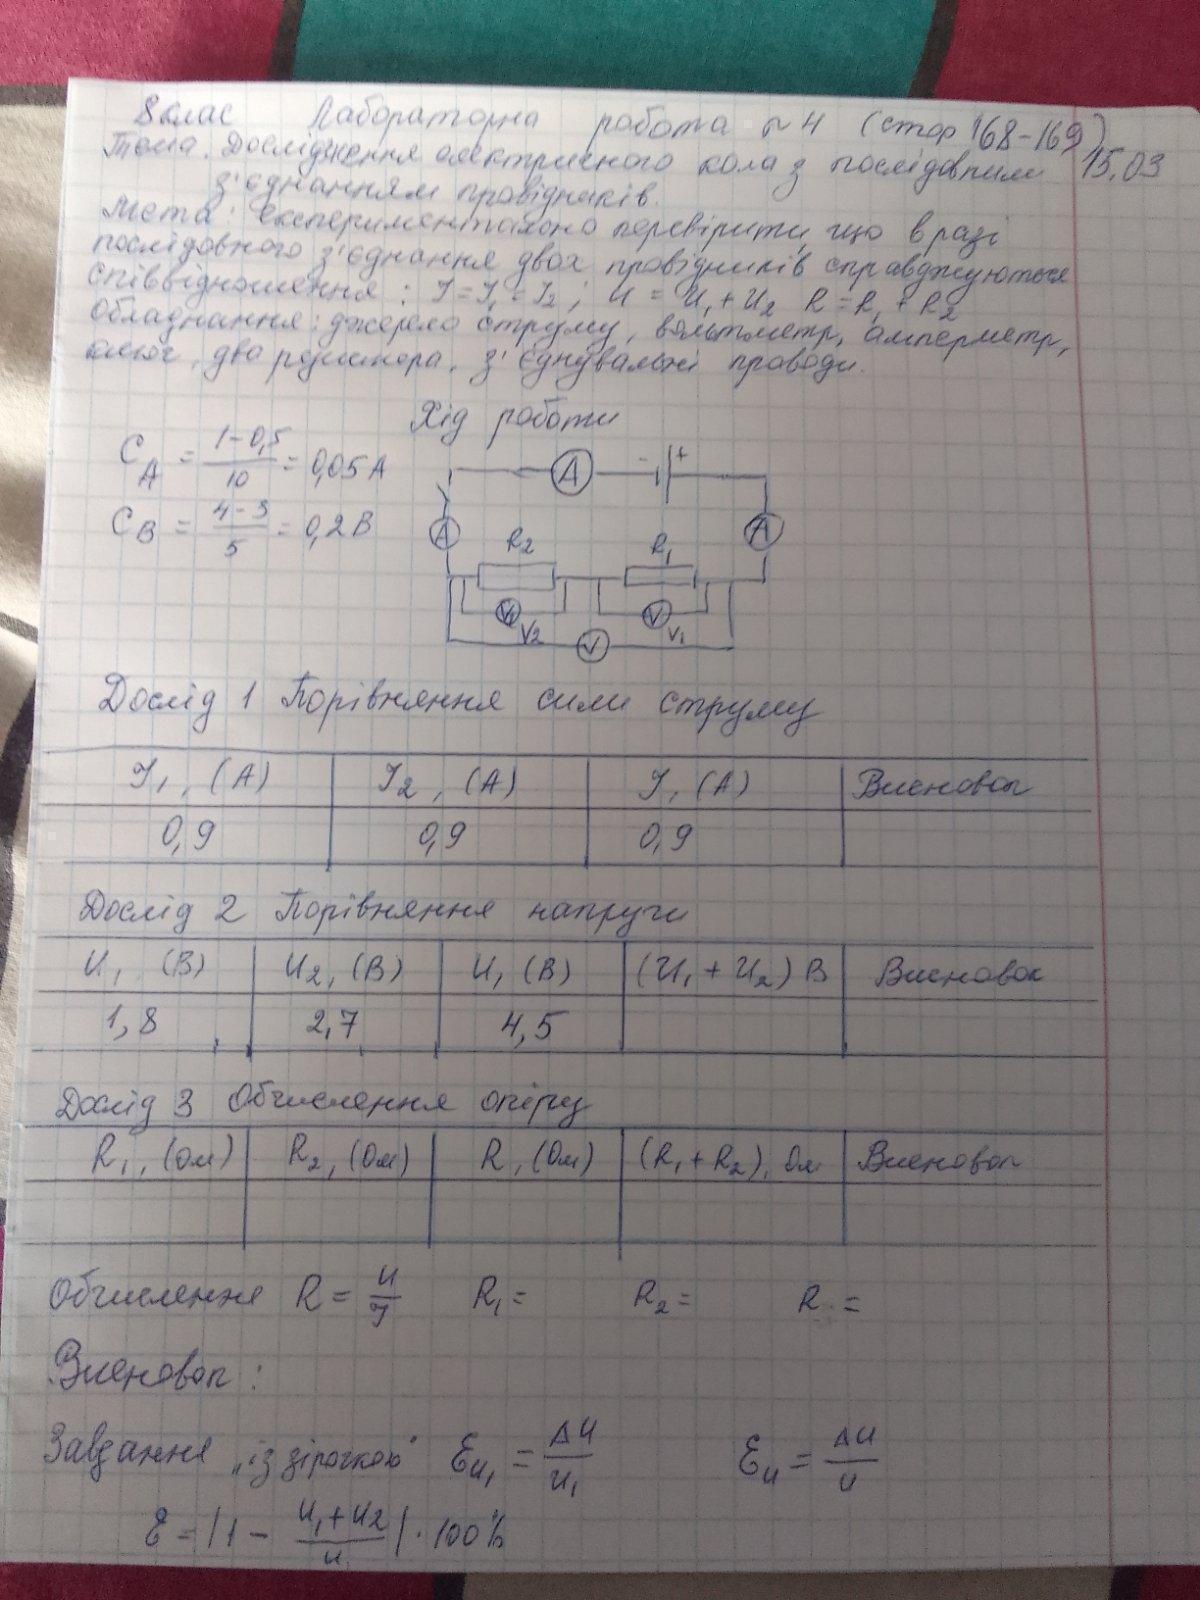 8 клас Лабораторна робота №4 (стор 168-169)
Тема. Дослідження електричного кола з послідовним 15.03
з'єднанням провідників.
Мета: експериментально перевірити, що в разі
послідовного з'єднання двох провідників справджуються
співвідношення: I = I₁ = I₂; U = U₁ + U₂ R = R₁ + R₂
Обладнання: джерело струму, вольтметр, амперметр,
ключ, два резистора, з'єднувальні проводи.
Хід роботи
C_A = (1-0,5)/10 = 0,05 A
C_B = (4-3)/5 = 0,2 В
A - +
A A
R₂ R₁
V V
V₂ V₁
V
Дослід 1 Порівняння сили струму
I₁, (A) I₂, (A) I, (A) Висновок
0,9 0,9 0,9
Дослід 2 Порівняння напруги
U₁ (В) U₂, (В) U, (В) (U₁ + U₂) В Висновок
1,8 2,7 4,5
Дослід 3 Обчислення опіру
R₁, (Ом) R₂, (Ом) R, (Ом) (R₁ + R₂), Ом Висновок
Обчислення R = U/I R₁ = R₂ = R =
Висновок:
Завдання „із зірочкою" ε_U₁ = ΔU/U₁ ε_U = ΔU/U
ε = |1 - (U₁+U₂)/U| · 100%